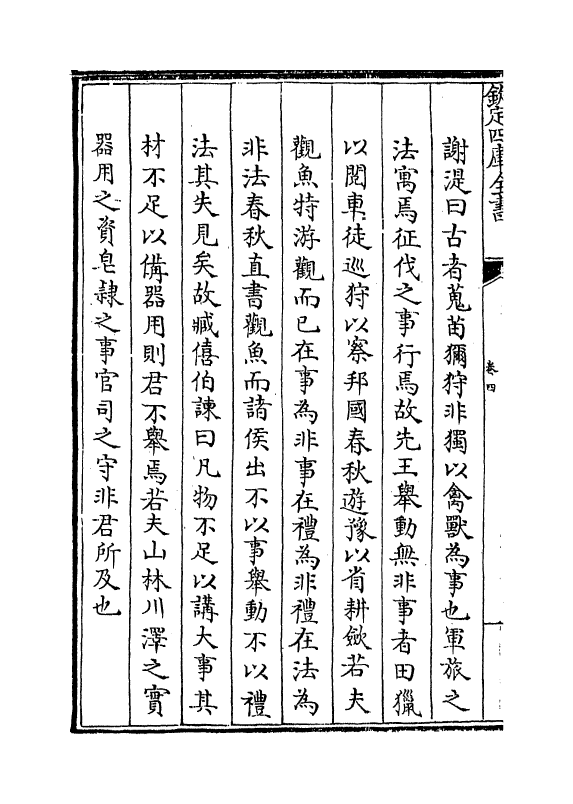 欽定四庫全書
卷四
謝湜曰古者蒐苗獮狩非獨以禽獸為事也軍旅之
法寓焉征伐之事行焉故先王舉動無非事者田獵
以閱車徒巡狩以察邦國春秋遊豫以省耕斂若夫
觀魚特游觀而已在事為非事在禮為非禮在法為
非法春秋直書觀魚而諸侯出不以事舉動不以禮
法其失見矣故臧僖伯諫曰凡物不足以講大事其
材不足以備器用則君不舉焉若夫山林川澤之實
器用之資皁隸之事官司之守非君所及也